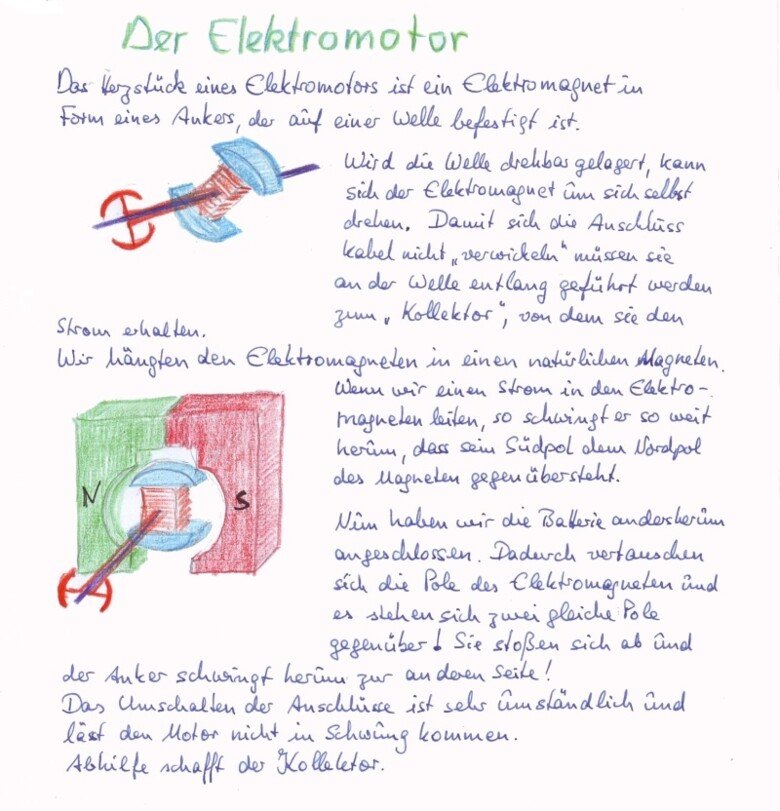 Der Elektromotor
Das Herzstück eines Elektromotors ist ein Elektromagnet in
Form eines Ankers, der auf einer Welle befestigt ist.
Wird die Welle drehbar gelagert, kann
sich der Elektromagnet um sich selbst
drehen. Damit sich die Anschluss
kabel nicht „verwickeln" müssen sie
an der Welle entlang geführt werden
zum „Kollektor", von dem sie den
Strom erhalten.
Wir hängten den Elektromagneten in einen natürlichen Magneten.
Wenn wir einen Strom in den Elektro-
magneten leiten, so schwingt er so weit
herum, dass sein Südpol dem Nordpol
des Magneten gegenübersteht.
N
S
Nun haben wir die Batterie andersherum
angeschlossen. Dadurch vertauschen
sich die Pole des Elektromagneten und
es stehen sich zwei gleiche Pole
gegenüber! Sie stoßen sich ab und
der Anker schwingt herum zur anderen Seite!
Das Umschalten der Anschlüsse ist sehr umständlich und
lässt den Motor nicht in Schwung kommen.
Abhilfe schafft der Kollektor.